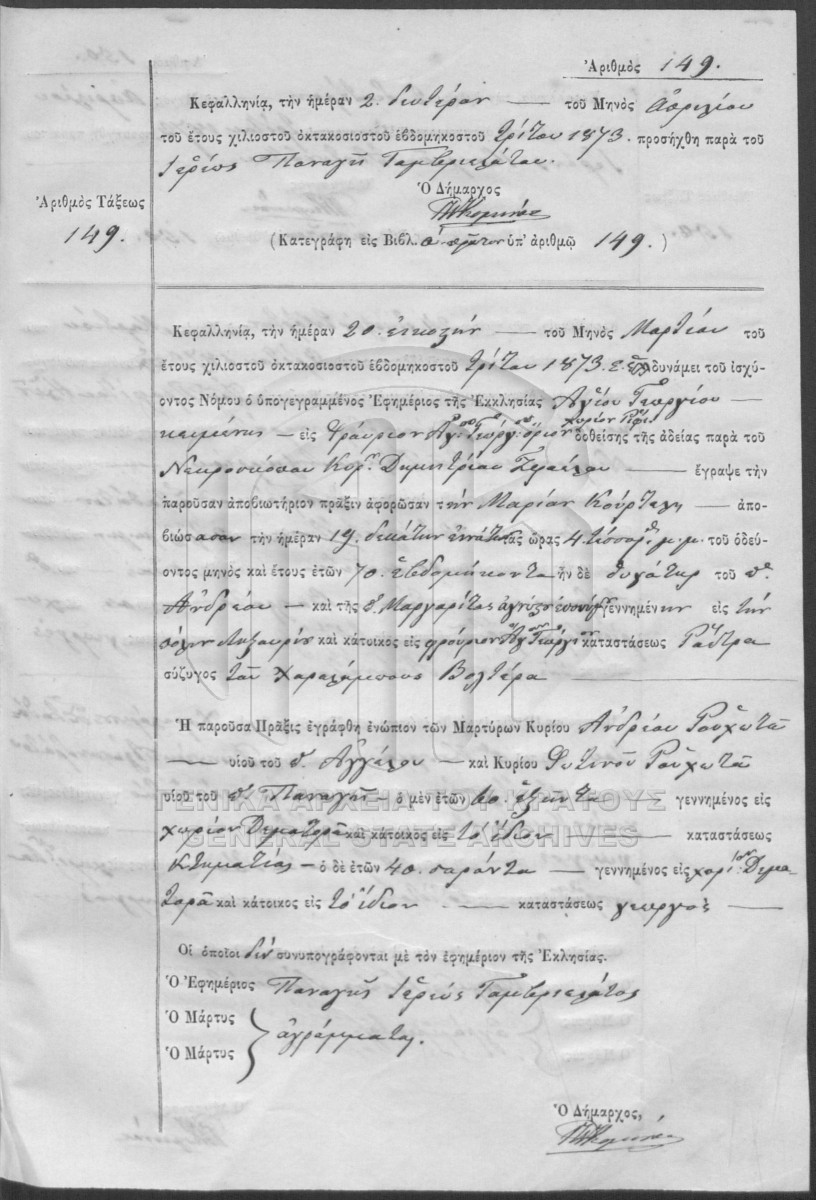 Ἀριθμὸς 149.
Κεφαλληνίᾳ, τὴν ἡμέραν 2. δευτέραν — τοῦ Μηνὸς Ἀπριλίου
τοῦ ἔτους χιλιοστοῦ ὀκτακοσιοστοῦ ἑβδομηκοστοῦ τρίτου 1873. προσήχθη παρὰ τοῦ
Ἱερέως Παναγῆ Γαμβριελάτου.
Ὁ Δήμαρχος
Ἀριθμὸς Τάξεως
149.
(Κατεγράφη εἰς Βιβλ. ὑπ' ἀριθμῷ 149.)
Κεφαλληνίᾳ, τὴν ἡμέραν 20. εἰκοστὴν — τοῦ Μηνὸς Μαρτίου τοῦ
ἔτους χιλιοστοῦ ὀκτακοσιοστοῦ ἑβδομηκοστοῦ τρίτου 1873. δυνάμει τοῦ ἰσχύ-
οντος Νόμου ὁ ὑπογεγραμμένος Ἐφημέριος τῆς Ἐκκλησίας Ἁγίου Γεωργίου
κειμένης — εἰς φρούριον δοθείσης τῆς ἀδείας παρὰ τοῦ
Νεκροσκόπου Κυρ. Δημητρίου — ἔγραψε τὴν
παροῦσαν ἀποβιωτήριον πρᾶξιν ἀφορῶσαν τὴν Μαρίαν — ἀπο-
βιώσασαν τὴν ἡμέραν 19. δεκάτην ἐννάτην τὰς ὥρας 4 μ.μ. τοῦ ὁδεύ-
οντος μηνὸς καὶ ἔτους ἐτῶν 70. ἑβδομήκοντα ἦν δὲ θυγάτηρ τοῦ
Ἀνδρέου — καὶ τῆς Μαργαρίτας γεννημένην εἰς τὴν
πόλιν Ληξουρίου καὶ κάτοικος εἰς φρούριον Ἁγ. Γεωργίου καταστάσεως Ράπτρα
σύζυγος τοῦ Χαραλάμπους Βολτέρα
Ἡ παροῦσα Πρᾶξις ἐγράφθη ἐνώπιον τῶν Μαρτύρων Κυρίου Ἀνδρέου
— υἱοῦ τοῦ Ἀγγέλου — καὶ Κυρίου Φωτεινοῦ
υἱοῦ τοῦ Παναγῆ ὁ μὲν ἐτῶν 60. ἑξῆντα γεννημένος εἰς
χωρίον καὶ κάτοικος εἰς τὸ ἴδιον — καταστάσεως
Κτηματίας — ὁ δὲ ἐτῶν 40. σαράντα — γεννημένος εἰς
καὶ κάτοικος εἰς τὸ ἴδιον — καταστάσεως γεωργὸς —
ΓΕΝΙΚΑ ΑΡΧΕΙΑ ΤΟΥ ΚΡΑΤΟΥΣ
GENERAL STATE ARCHIVES
Οἱ ὁποῖοι δὲν συνυπογράφονται μὲ τὸν ἐφημέριον τῆς Ἐκλησίας.
Ὁ Ἐφημέριος Παναγῆς Ἱερεὺς Γαμβριελάτος
Ὁ Μάρτυς
Ὁ Μάρτυς
ἀγράμματοι.
Ὁ Δήμαρχος,